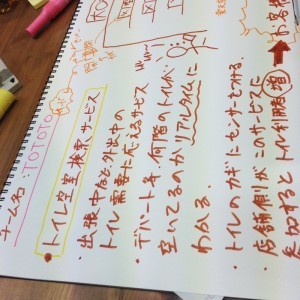 チーム名：TOTOTO
トイレ空室検索サービス
・出張中など外出中の
トイレ需要に応えるサービス
・デパート等、何階のトイレが
空いてるのかリアルタイムに
わかる。
・トイレのカギにセンサーをつける。
・店舗側がこのサービスに
参加するとトイレ利用者増
➡お客様